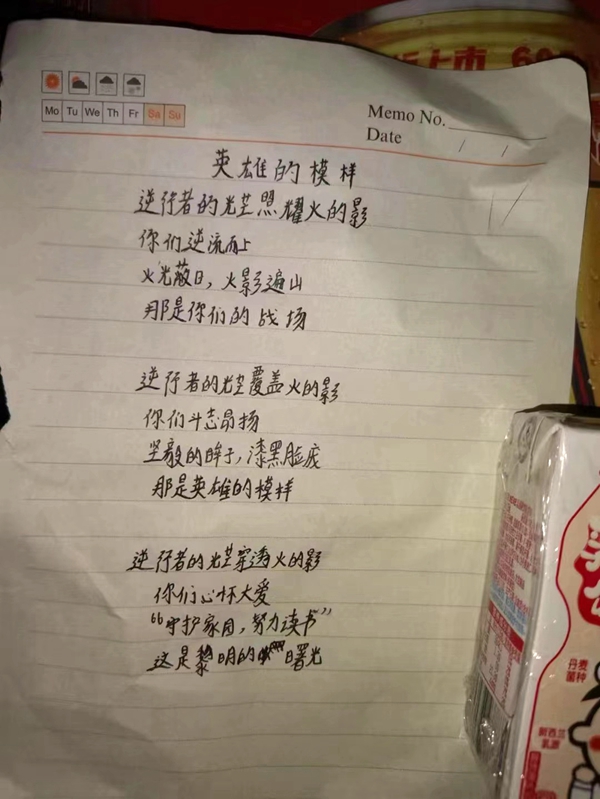 上市 60
Mo Tu We Th Fr Sa Su
Memo No.
Date / /
英雄的模样
逆行者的光芒照耀火的影
你们逆流而上
火光蔽日，火影遍山
那是你们的战场
逆行者的光芒覆盖火的影
你们斗志昂扬
坚毅的眸子，漆黑脸庞
那是英雄的模样
逆行者的光芒穿透火的影
你们心怀大爱
“守护家园，努力读书”
这是黎明的曙光
丹麦
菌种
新西兰
乳源